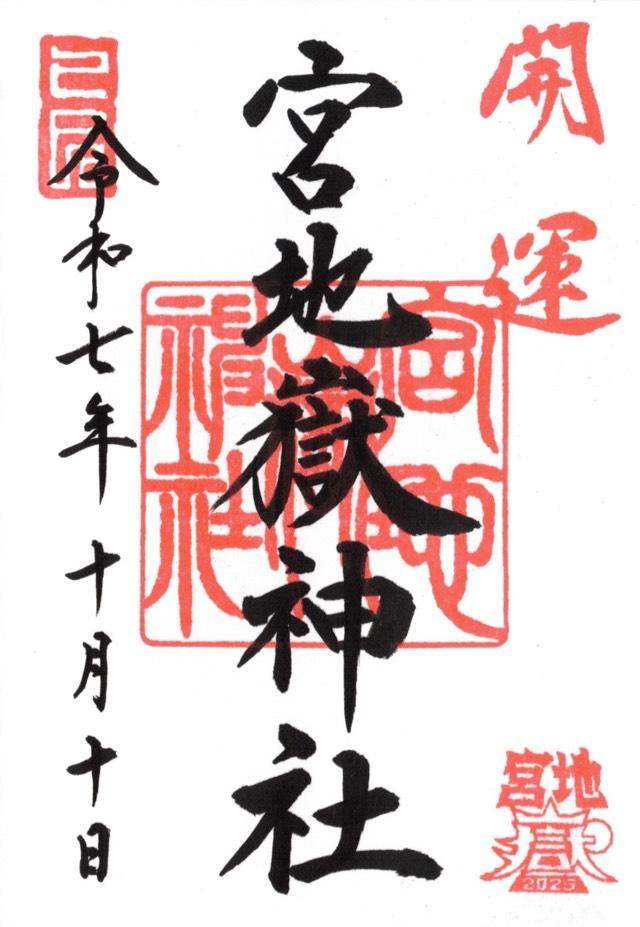 開運
宮地嶽神社
宮地嶽神社
令和七年十月十日
宮地
嶽
2025